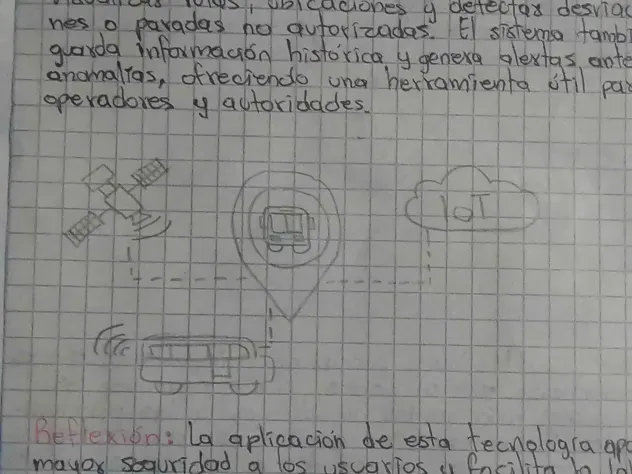 rutas, ubicaciones y detectar desviacio
nes o paradas no autorizadas. El sistema tambi
guarda información histórica y genera alertas ante
anomalías, ofreciendo una herramienta útil par
operadores y autoridades.
IoT
Reflexión: La aplicación de esta tecnología apo
mayor seguridad a los usuarios y facilita